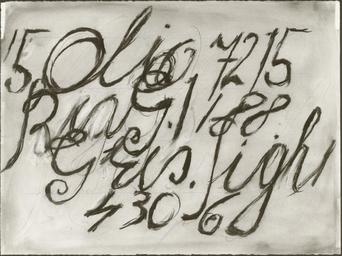 15 Olio 7215
Ring. 1 188
Geis. Sigh
430 6